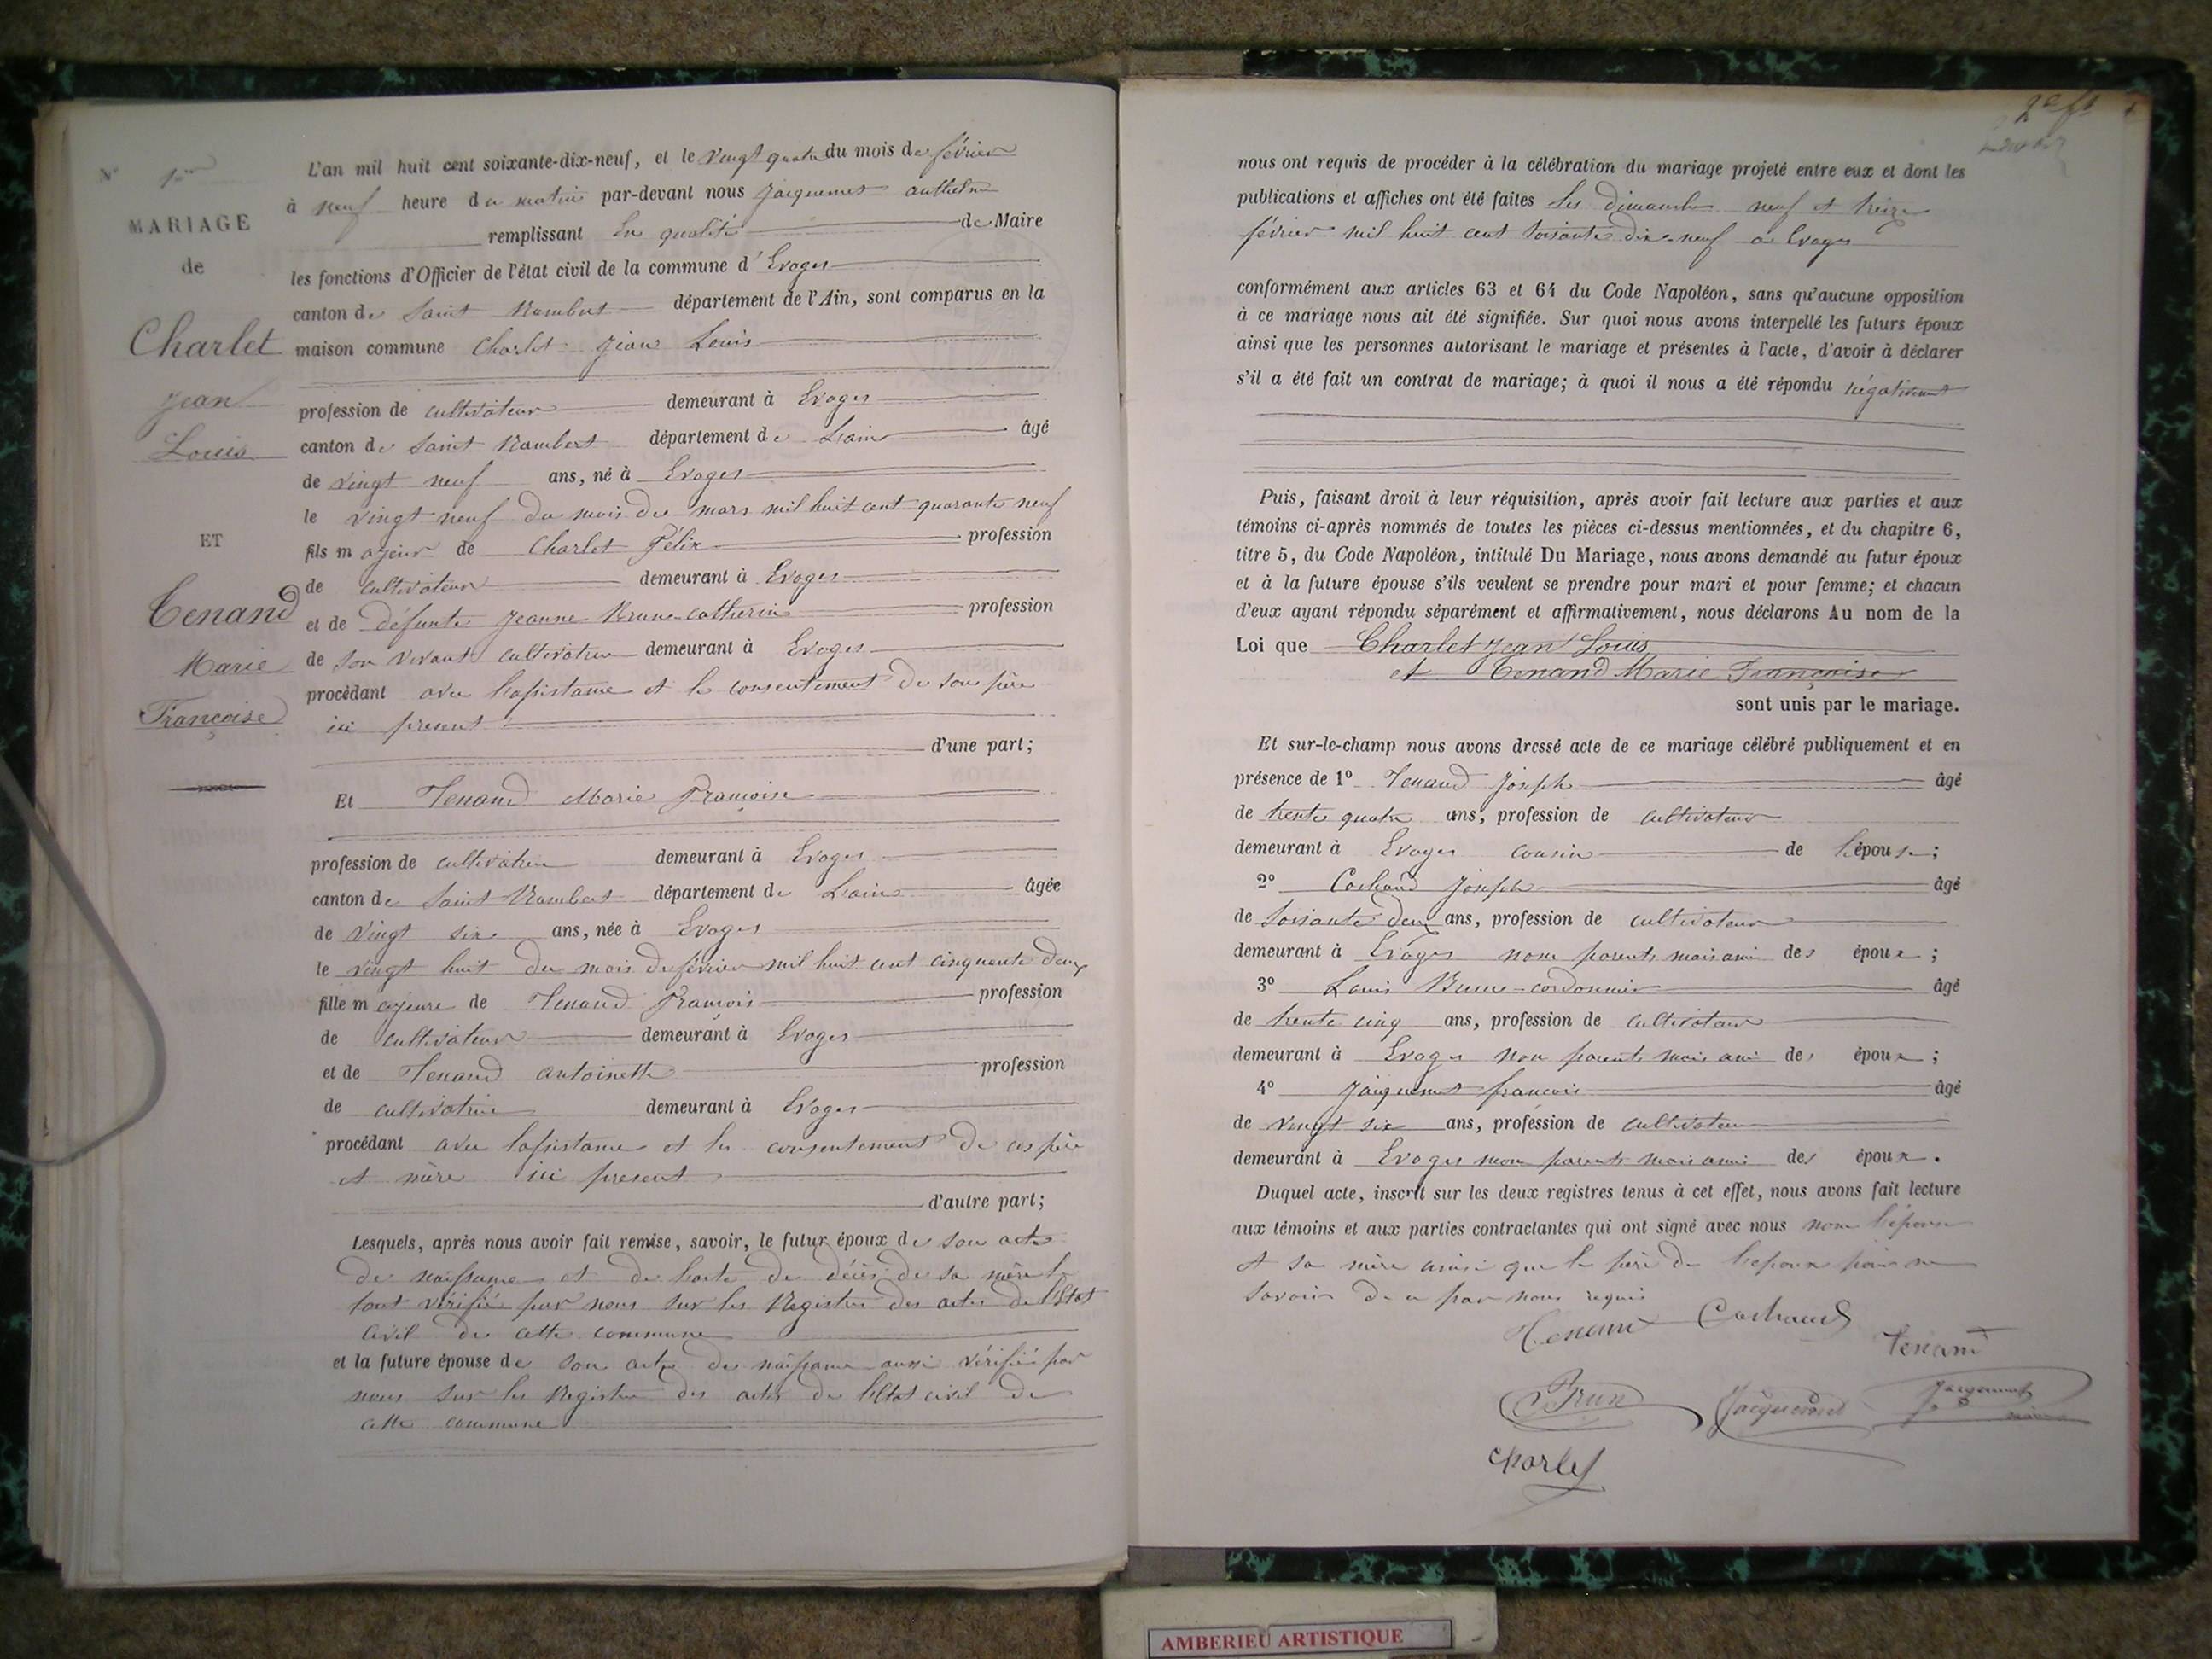 N° 1er
MARIAGE
de
Charlet
Jean
Louis
ET
Tenand
Marie
Françoise
L'an mil huit cent soixante-dix-neuf, et le vingt quatre du mois de février
à neuf heure du matin par-devant nous Jacquemet anthelme
remplissant En qualité de Maire
les fonctions d'Officier de l'état civil de la commune d'Evoges
canton de Saint Rambert département de l'Ain, sont comparus en la
maison commune Charlet Jean Louis
profession de cultivateur demeurant à Evoges
canton de Saint Rambert département de Lain âgé
de vingt neuf ans, né à Evoges
le vingt neuf du mois de mars mil huit cent quarante neuf
fils majeur de Charlet Félix profession
de cultivateur demeurant à Evoges
et de défunte Jeanne Brun Catherine profession
de son vivant cultivatrice demeurant à Evoges
procédant avec l'assistance et le consentement de son père
ici present
d'une part;
Et Tenand Marie Françoise
profession de cultivatrice demeurant à Evoges
canton de Saint Rambert département de Lain âgée
de vingt six ans, née à Evoges
le vingt huit du mois de février mil huit cent cinquante deux
fille majeure de Tenand François profession
de cultivateur demeurant à Evoges
et de Tenand antoinette profession
de cultivatrice demeurant à Evoges
procédant avec l'assistance et les consentement de ces père
et mère ici present
d'autre part;
Lesquels, après nous avoir fait remise, savoir, le futur époux de son acte
de naissance et de l'acte de décès de sa mère le
tout vérifié par nous sur les Registres des actes de l'Etat
civil de cette commune
et la future épouse de son acte de naissance aussi vérifié par
nous sur les Registres des actes de l'Etat civil de
cette commune
2e ft
nous ont requis de procéder à la célébration du mariage projeté entre eux et dont les
publications et affiches ont été faites les dimanches neuf et treize
février mil huit cent soisante dix-neuf a Evoges
conformément aux articles 63 et 64 du Code Napoléon, sans qu'aucune opposition
à ce mariage nous ait été signifiée. Sur quoi nous avons interpellé les futurs époux
ainsi que les personnes autorisant le mariage et présentes à l'acte, d'avoir à déclarer
s'il a été fait un contrat de mariage; à quoi il nous a été répondu négativement
Puis, faisant droit à leur réquisition, après avoir fait lecture aux parties et aux
témoins ci-après nommés de toutes les pièces ci-dessus mentionnées, et du chapitre 6,
titre 5, du Code Napoléon, intitulé Du Mariage, nous avons demandé au futur époux
et à la future épouse s'ils veulent se prendre pour mari et pour femme; et chacun
d'eux ayant répondu séparément et affirmativement, nous déclarons Au nom de la
Loi que Charlet Jean Louis
et Tenand Marie Françoise
sont unis par le mariage.
Et sur-le-champ nous avons dressé acte de ce mariage célébré publiquement et en
présence de 1° Tenand Joseph âgé
de trente quatre ans, profession de cultivateur
demeurant à Evoges cousin de l'épouse;
2° Cochaud Joseph âgé
de soisante deux ans, profession de cultivateur
demeurant à Evoges non parents mais ami des époux;
3° Louis Brun-cordonnier âgé
de trente cinq ans, profession de cultivateur
demeurant à Evoges non parents mais ami des époux;
4° Jacquemet françois âgé
de vingt six ans, profession de cultivateur
demeurant à Evoges non parents mais ami des époux.
Duquel acte, inscrit sur les deux registres tenus à cet effet, nous avons fait lecture
aux témoins et aux parties contractantes qui ont signé avec nous non l'épouse
et sa mère ainsi que le père de l'epoux pour ne
savoir de ce par nous requis
Tenand Cochaud Tenand
Brun Jacquemet Jacquemet
maire
Charlet
AMBERIEU ARTISTIQUE